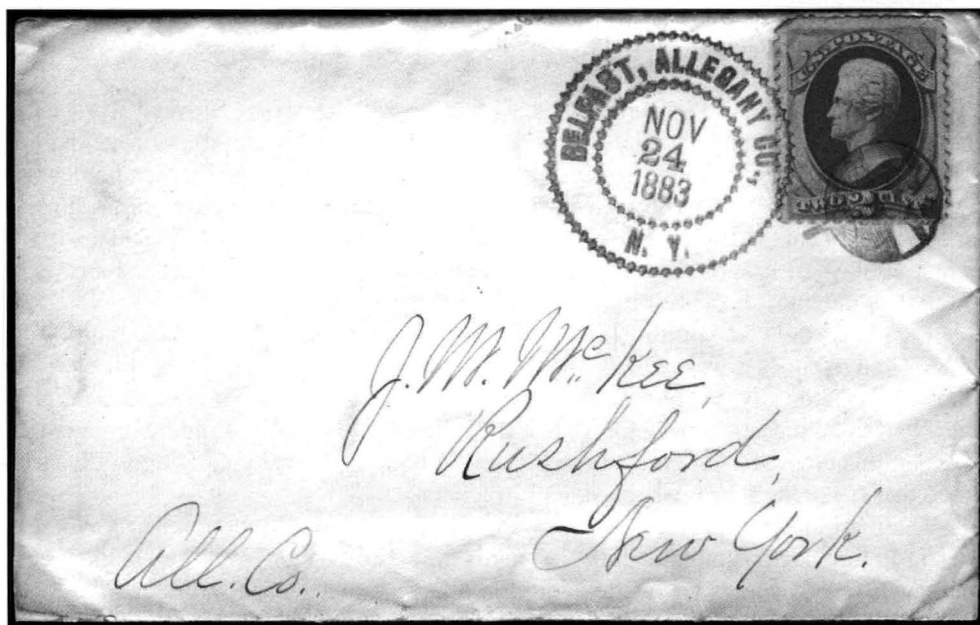 BELFAST, ALLEGANY CO.,
NOV
24
1883
N. Y.
U.S. POSTAGE
TWO 2 CENTS
J. M. McKee,
Rushford,
New York.
All. Co.